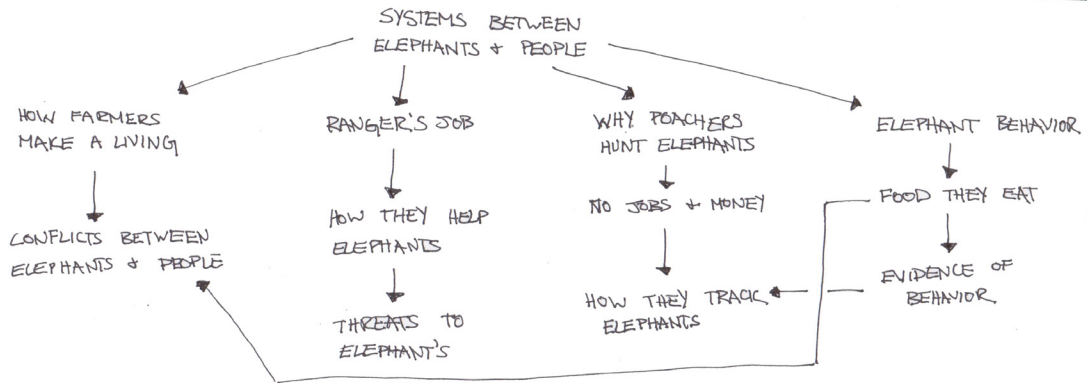 SYSTEMS BETWEEN
ELEPHANTS & PEOPLE
HOW FARMERS
MAKE A LIVING
CONFLICTS BETWEEN
ELEPHANTS & PEOPLE
RANGER'S JOB
HOW THEY HELP
ELEPHANTS
THREATS TO
ELEPHANT'S
WHY POACHERS
HUNT ELEPHANTS
NO JOBS & MONEY
HOW THEY TRACK
ELEPHANTS
ELEPHANT BEHAVIOR
FOOD THEY EAT
EVIDENCE OF
BEHAVIOR